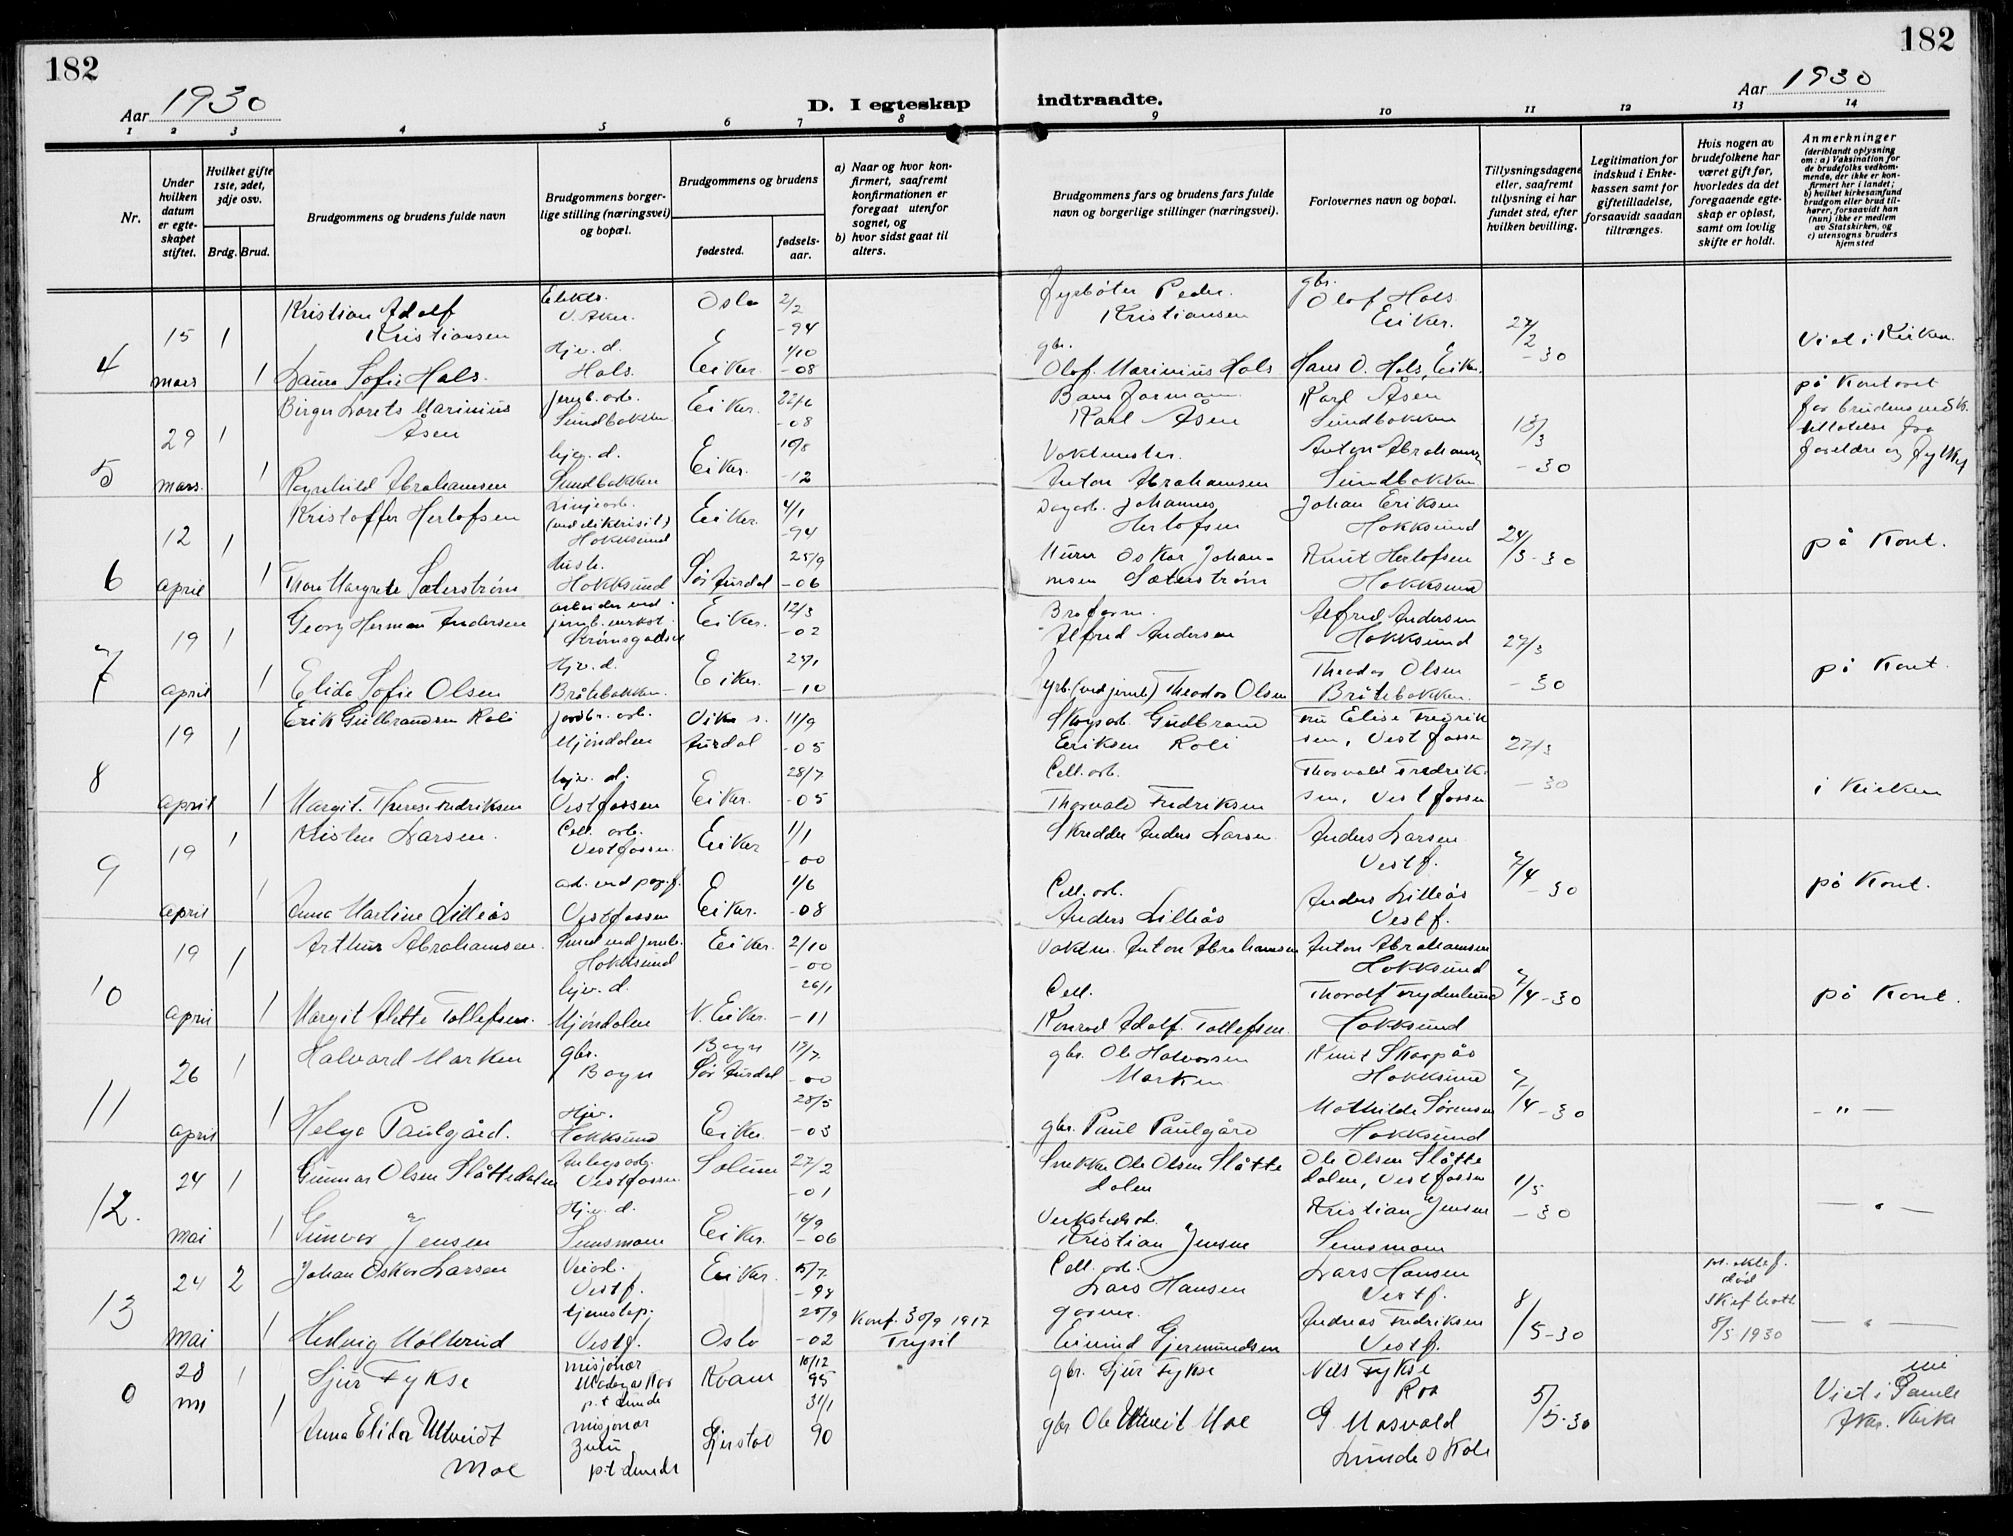 182
182
Aar 1930
D. I egteskap
indtraadte.
Aar 1930
1 2 3 4 5 6 7 8
9 10 11 12 13 14
Nr.
Under hvilken datum er egteskapet stiftet.
Hvilket gifte 1ste, 2det, 3dje osv.
Brdg. Brud.
Brudgommens og brudens fulde navn
Brudgommens borgerlige stilling (næringsvei) og bopæl.
Brudgommens og brudens
fødested.
fødselsaar.
a) Naar og hvor konfirmert, saafremt konfirmationen er foregaat utenfor sognet, og
b) hvor sidst gaat til alters.
Brudgommens fars og brudens fars fulde navn og borgerlige stillinger (næringsvei).
Forlovernes navn og bopæl.
Tillysningsdagene eller, saafremt tillysning ei har fundet sted, efter hvilken bevilling.
Legitimation for indskud i Enkekassen samt for giftetilladelse, forsaavidt saadan tiltrænges.
Hvis nogen av brudefolkene har været gift før, hvorledes da det foregaaende egteskap er opløst, samt om lovlig skifte er holdt.
Anmerkninger
(deriblandt oplysning om: a) Vaksination for de brudefolks vedkommende, der ikke er konfirmert her i landet; b) hvilket kirkesamfund brudgom eller brud tilhører, forsaavidt han (hun) ikke er medlem av Statskirken, og c) utensogns bruders hjemsted
4 15 mars 1 Kristian Adolf Kristiansen V. Aker Oslo 2/2 -94 Fyrbøter Peder Kristiansen gbr. Olof Hals Eiker. 27/2 -30 Viet i Kirken
1 Laura Sofie Hals. Hjv. d. Hals. Eiker 1/10 -08 gbr. Olof Marinius Hals Hans O. Hals, Eiker
5 29 mars. 1 Birger Lorets Marinius Åsen jernb. arb. Sundbakken Eiker. 22/6 -08 Baneformann Karl Åsen Karl Åsen Sundbakken 13/3 -30 på Kontoret
1 Ragnhild Abrahamsen hjv. d. Sundbakken Eiker. 10/8 -12 Vaktmester Anton Abrahamsen Anton Abrahamsen Sundbakken
6 12 april 1 Kristoffer Herlofsen Linjearb. Hokksund Eiker. 4/1 -94 Dagarb. Johannes Herlofsen Johan Eriksen Hokksund 24/3 -30 på Kont.
1 Thora Margrete Sæterstrøm Hokksund Sør Aurdal 25/9 -06 Murer Oskar Johannesen Sæterstrøm Knut Herlofsen Hokksund
7 19 april 1 Georg Herman Andersen arbeider ved jernb. verkst. Strømsgodset Eiker. 12/3 -02 Alfred Andersen Alfred Andersen Hokksund 27/3 -30 på Kont.
1 Elida Sofie Olsen Hjv. d. Bråtebakken. Eiker. -10 Theodor Olsen Theodor Olsen Bråtebakken.
8 19 april 1 Erik Gulbrandsen Roli jordbr. arb. Mjøndalen Aurdal 11/9 -05 Skogsarb. Gudbrand Eriksen Roli Fru Elise Fredriksen, Vestfossen 27/3 -30 i Kirken
1 Margit Therese Fredriksen hjv. d. Vestfossen Eiker. 28/7 -05 Cell. arb. Thorvald Fredriksen Thorvald Fredriksen, Vestfossen
9 19 april 1 Kristen Larsen. Cell. arb. Vestfossen. Eiker 1/1 -00 Skredder Anders Larsen Anders Larsen Vestf. 7/4 -30 på Kont.
1 Anna Martine Lilleås Vestfossen Eiker. 1/6 -08 Cell. arb. Anders Lilleås Anders Lilleås Vestf.
10 19 april 1 Arthur Abrahamsen. Smed ved jernb. Hokksund Eiker. 2/10 -00 Vaktm. Anton Abrahamsen Anton Abrahamsen Hokksund 7/4 -30 på Kont.
1 Margit Alette Tollefsen. hjv. d. Mjøndalen N. Eiker. 26/1 -11 Cell. Konrad Adolf Tollefsen Thorolf Frydenlund Hokksund
11 26 april 1 Halvard Marken gbr. Bagn Bagn Sør Aurdal 17/7 -00 gbr. Ole Halvorsen Marken Knut Skarpås Hokksund 7/4 -30 - " -
1 Helga Paulgård. Hjv. Hokksund Eiker 28/5 -03 gbr. Paul Paulgård Mathilde Sørensen Hokksund
12. 24 mai 1 Gunnar Olsen Slåttedalen Anlegsarb. Vestfossen Solum 27/2 -01 Snekker Ole Olsen Slåttedalen Ole Olsen Slåttedalen, Vestfossen 1/5 -30 - " -
1 Gunvor Jensen Hjv. d. Semsmoen Eiker. 16/9 -06 Verkstedsarb. Kristian Jensen Kristian Jensen Semsmoen
13 24 mai 2 Johan Oskar Larsen Veiarb. Vestf. Eiker. 5/7 Cell. arb. Lars Hansen Lars Hansen Vestf. 8/5 -30 død 8/5 1930 - " -
1 Hedvig Mølterud Vestf. Oslo 25/9 -02 Konf. 30/9 1917 Trysil Eivind Gjermundsen Andreas Fredriksen Vestf.
0 28 mai 1 Sjur Fykse misjonær Madagaskar p.t. Lunde Kvam 10/12 95 gbr. Sjur Fykse Nils Fykse 5/5 -30 Viet i
1 Anna Elida Utveidt Moe misjonær Zulu p.t. Lunde Gjerstad 31/1 90 gbr Ole Utveit Moe G. Masvald Lunde